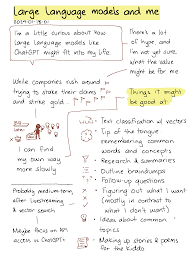 Large language models and me
I'm a little curious about how
large language models like
ChatGPT might fit into my life.
There's a lot
of hype, and
I'm not yet sure
what the value
might be for me
While companies rush around
trying to stake their claims
and strike gold...
Things it might
be good at:
I can find
my own way
more slowly
Text classification w/ vectors
Tip of the tongue
remembering common
words and concepts
Research & summaries
Outline braindumps
Follow-up questions
Figuring out what I want
(mostly in contrast to
what I don't want)
Ideas about common
topics
Making up stories & poems
for the kiddo
Probably medium-term,
after livestreaming
& vector search
Maybe focus on API
access vs ChatGPT+